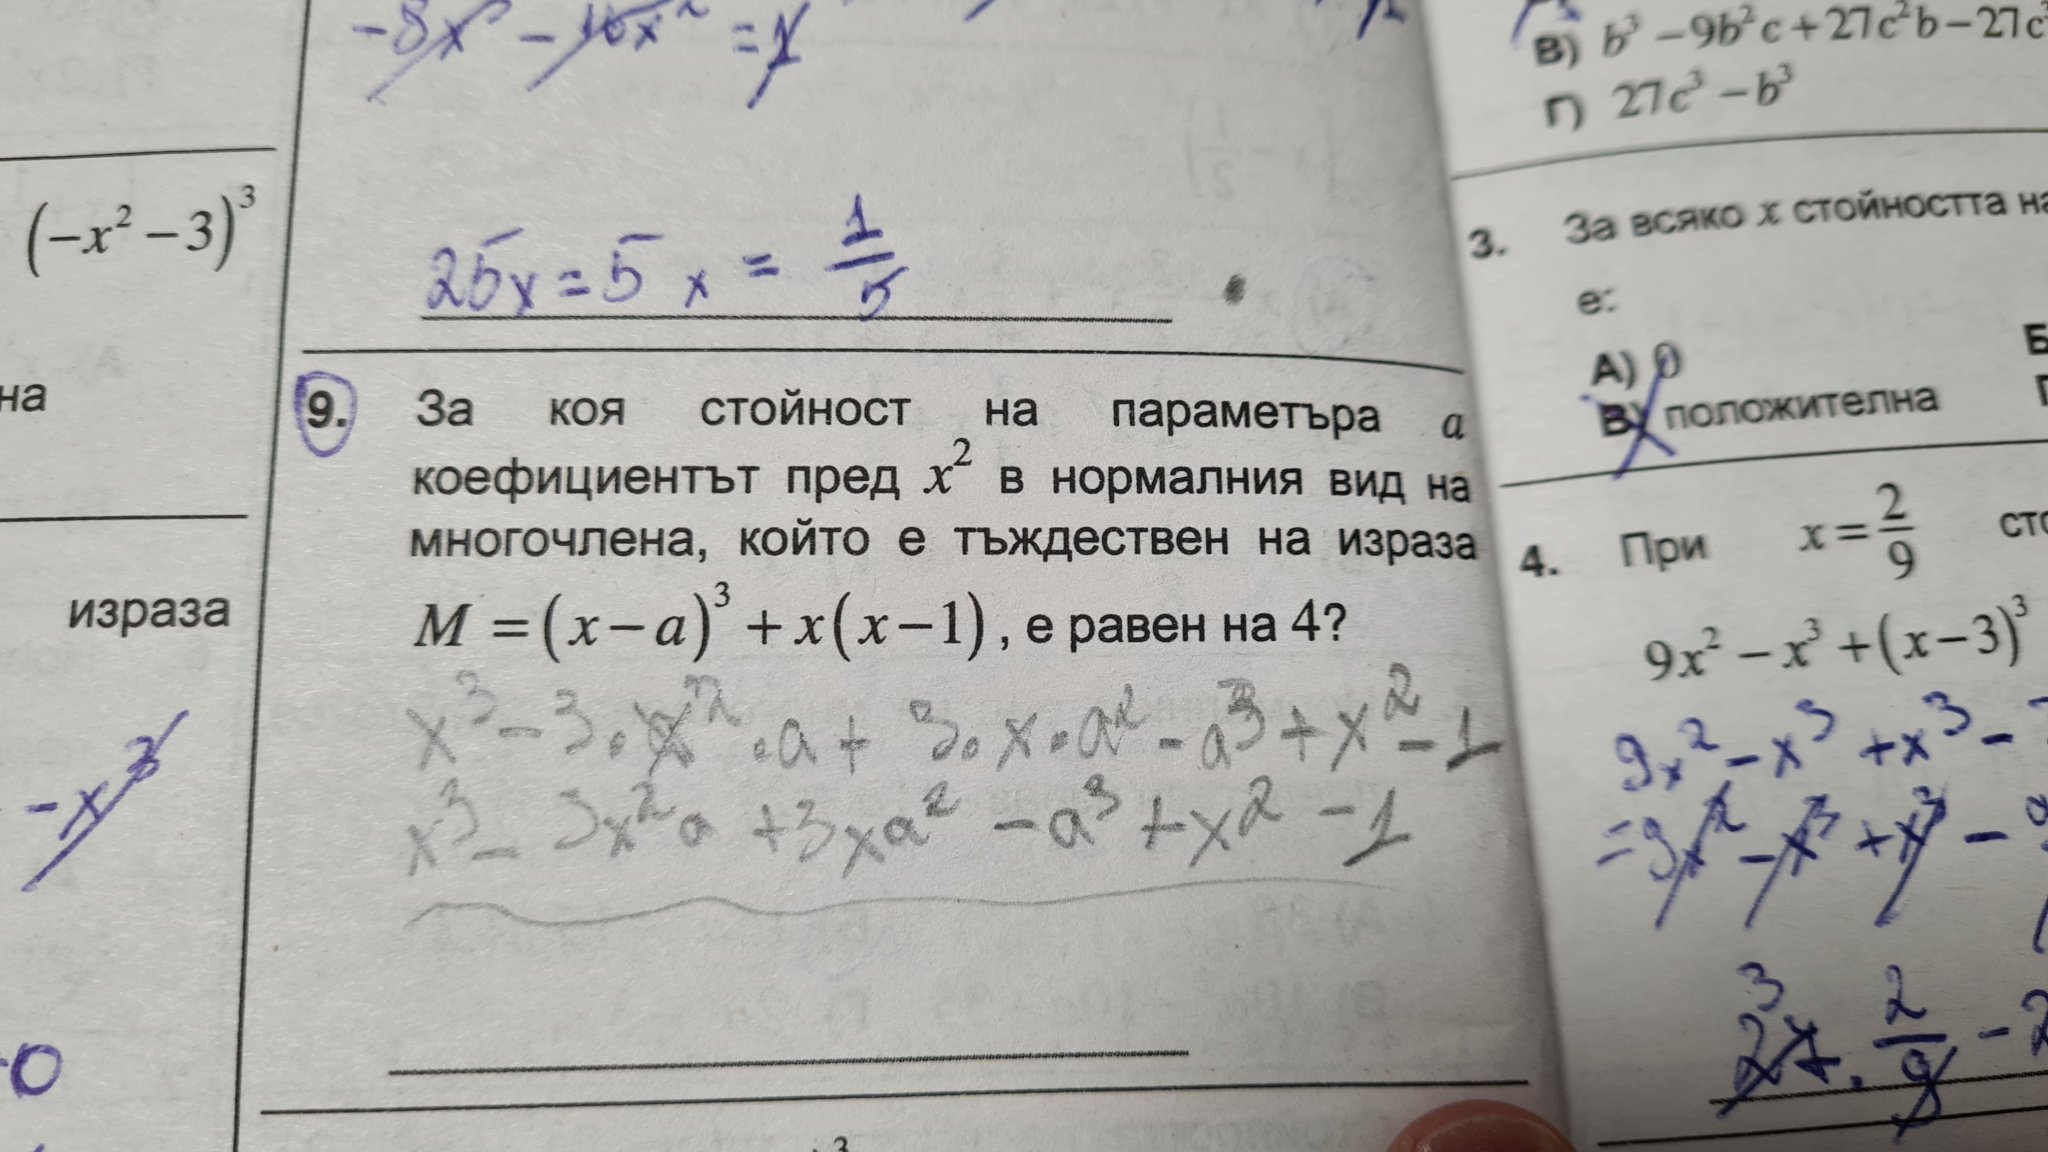 (−x² − 3)³
на
израза
−x³
0
−8x³ − 16x² = 1
25x = 5 x = 1/5
9. За коя стойност на параметъра a
коефициентът пред x² в нормалния вид на
многочлена, който е тъждествен на израза
M = (x − a)³ + x(x − 1), е равен на 4?
x³ − 3 · x² · a + 3 · x · a² − a³ + x² − 1
x³ − 3x²a + 3xa² − a³ + x² − 1
В) b³ − 9b²c + 27c²b − 27c³
Г) 27c³ − b³
3. За всяко x стойността на
е:
А) 0
Б
В) положителна
4. При x = 2/9
9x² − x³ + (x − 3)³
9x² − x³ + x³ −
= 9x² − x³ + x³ −
3
27 · 2/9 − 2